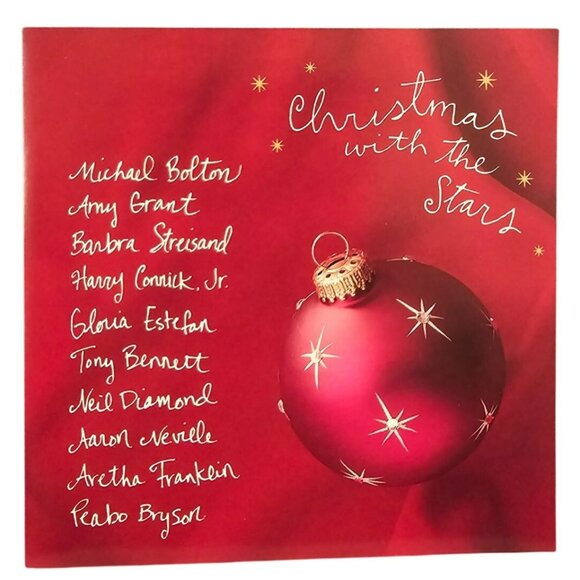 Christmas
with the
Stars
Michael Bolton
Amy Grant
Barbra Streisand
Harry Connick, Jr.
Gloria Estefan
Tony Bennett
Neil Diamond
Aaron Neville
Aretha Franklin
Peabo Bryson